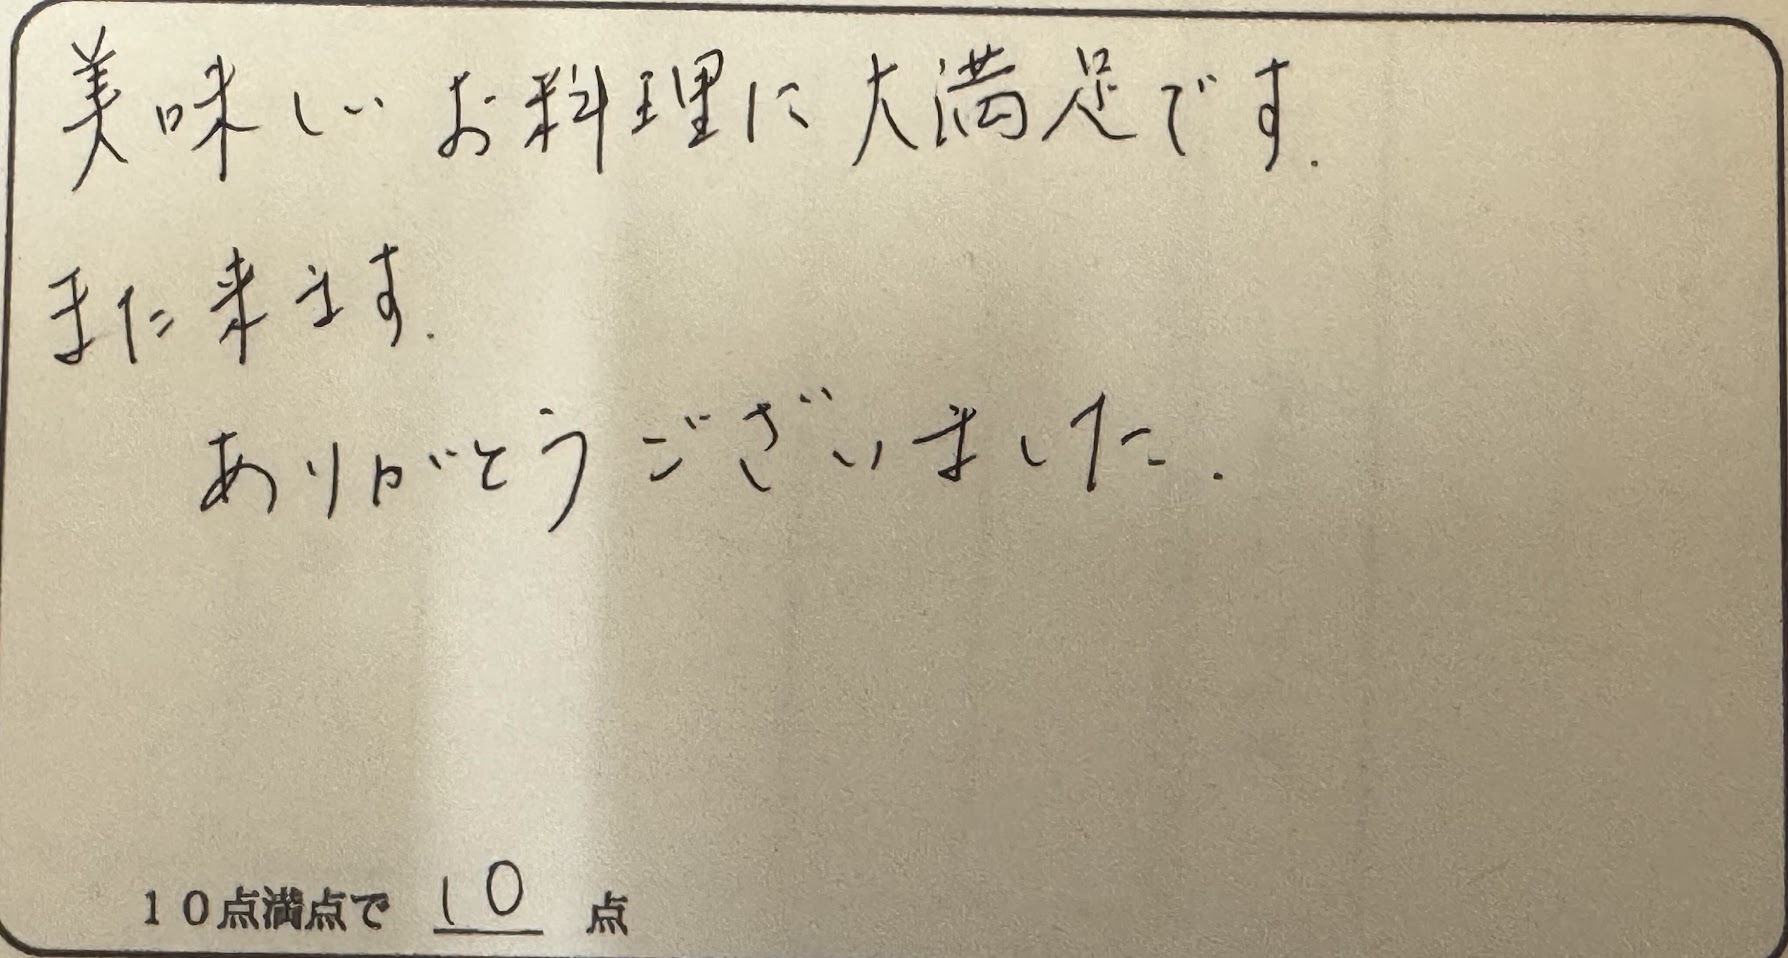 美味しいお料理に大満足です.
また来ます.
ありがとうございました.
10点満点で 10 点